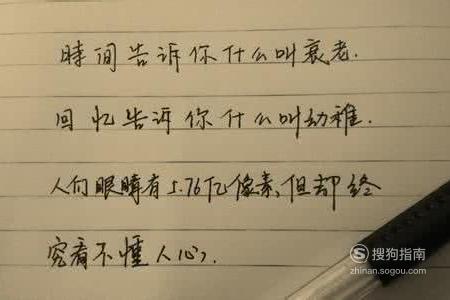 時间告诉你什么叫衰老.
回忆告诉你什么叫幼稚.
人们眼睛有5.76亿像素,但却终
究看不懂人心.
搜狗指南
zhinan.sogou.com